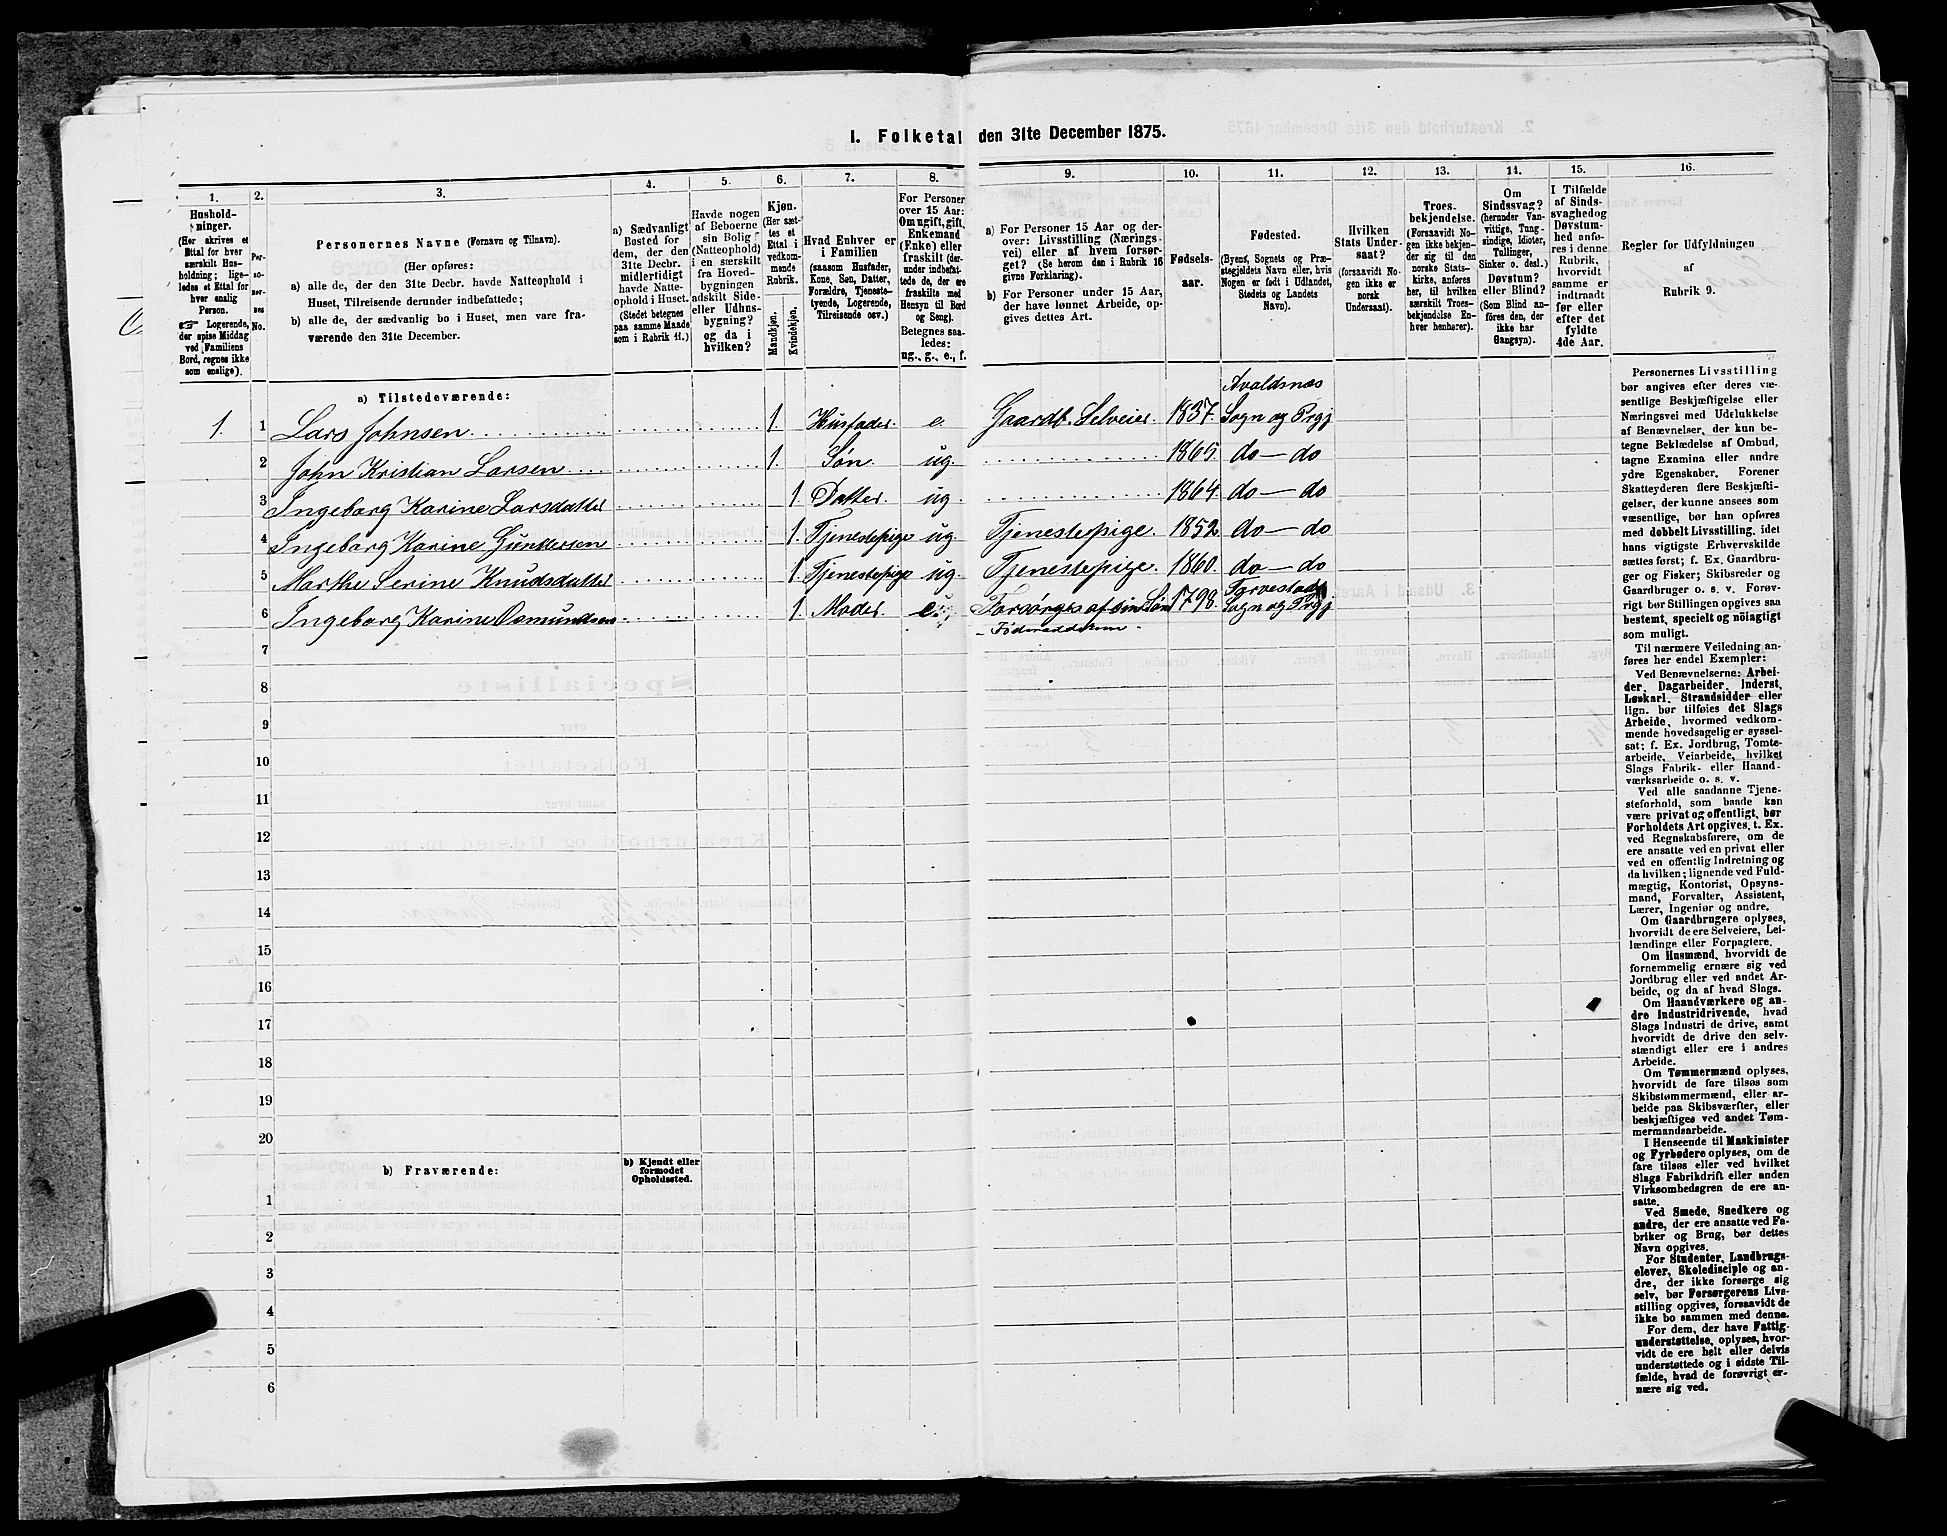 1. Folketal den 31te December 1875.
1. 2. 3. 4. 5. 6. 7. 8. 9. 10. 11. 12. 13. 14. 15. 16.
Hushold-
ninger.
(Her skrives et
Ettal for hver
særskilt Hus-
holdning; lige-
ledes et Ettal for
hver enslig
Person.
☞ Logerende,
der spise Middag
ved Familiens
Bord, regnes ikke
som enslige).
Per-
so-
ner-
nes
No.
Personernes Navne (Fornavn og Tilnavn).
(Her opføres:
a) alle de, der den 31te Decbr. havde Natteophold i
Huset, Tilreisende derunder indbefattede;
b) alle de, der sædvanlig bo i Huset, men vare fra-
værende den 31te December.
a) Sædvanligt
Bosted for
dem, der den
31te Decbr.
midlertidigt
havde Natte-
ophold i Huset.
(Stedet betegnes
paa samme Maade
som i Rubrik 11.)
Havde nogen
af Beboerne
sin Bolig
(Natteophold)
i en særskilt
fra Hoved-
bygningen
adskilt Side-
eller Udhus-
bygning?
og da i
hvilken?
Kjøn.
(Her sæt-
tes et
Ettal i
vedkom-
mende
Rubrik.
Mandkjøn.
Kvindekjøn.
Hvad Enhver er
i Familien
(saasom Husfader,
Kone, Søn, Datter,
Forældre, Tjeneste-
tyende, Logerende,
Tilreisende osv.)
For Personer
over 15 Aar:
Om ugift, gift,
Enkemand
(Enke) eller
fraskilt (der-
under indbefat-
tede de, der ere
fraskilte med
Hensyn til Bord
og Seng).
Betegnes saa-
ledes:
ug., g., e., f.
a) For Personer 15 Aar og der-
over: Livsstilling (Nærings-
vei) eller af hvem forsør-
get? (Se herom den i Rubrik 16
givne Forklaring).
b) For Personer under 15 Aar,
der have lønnet Arbeide, op-
gives dettes Art.
Fødsels-
aar.
Fødested.
(Byens, Sognets og Præ-
stegjeldets Navn eller, hvis
Nogen er født i Udlandet,
Stedets og Landets
Navn).
Hvilken
Stats Under-
saat?
(forsaavidt No-
gen ikke er
norsk
Undersaat).
Troes-
bekjendelse.
(Forsaavidt No-
gen ikke bekjen-
der sig til den
norske Stats-
kirke, anføres
her, til hvilken
særskilt Troes-
bekjendelse En-
hver henhører).
Om
Sindssvag?
(herunder Van-
vittige, Tung-
sindige, Idioter,
Tullinger,
Sinker o. desl.)
Døvstum?
eller Blind?
(Som Blind an-
føres den, der
ikke har
Gangsyn).
I Tilfælde
af Sinds-
svaghed og
Døvstum-
hed anfø-
res i denne
Rubrik,
hvorvidt
samme er
indtraadt
før eller
efter det
fyldte
4de Aar.
Regler for Udfyldningen
af
Rubrik 9.
a) Tilstedeværende:
Avaldsnæs
1. 1 Lars Johnsen 1. Husfader e. Gaardb. Selveier 1837. Sogn og Prgj
2 John Kristian Larsen 1. Søn. ug. 1865. do — do
3 Ingeborg Karine Larsdatter 1. Datter ug. 1864. do — do
4 Ingeborg Karine Gundersen 1. Tjenestepige ug. Tjenestepige. 1852. do — do
5 Marthe Serine Knudsdatter 1. Tjenestepige ug. Tjenestepige. 1860. do — do
Torvestad
6 Ingeborg Karine Osmundsen 1. Moder e. Forsørges af sin Søn 1798. Sogn og Prgj
7
8
9
10
11
12
13
14
15
16
17
18
19
20
b) Fraværende:
b) Kjendt eller
formodet
Opholdssted.
1
2
3
4
5
6
Personernes Livsstilling
bør angives efter deres væ-
sentlige Beskjæftigelse eller
Næringsvei med Udelukkelse
af Benævnelser, der kun be-
tegne Beklædelse af Ombud,
tagne Examina eller andre
ydre Egenskaber. Forener
Skatteyderen flere Beskjæfti-
gelser, der kunne ansees som
væsentlige, bør han opføres
med dobbelt Livsstilling, idet
hans vigtigste Erhvervskilde
sættes først; f. Ex. Gaardbru-
ger og Fisker; Skibsreder og
Gaardbruger o. s. v. Forøv-
rigt bør Stillingen opgives saa
bestemt, specielt og nöiagtigt
som muligt.
Til nærmere Veiledning an-
føres her endel Exempler:
Ved Benævnelserne: Arbei-
der, Dagarbeider, Inderst,
Løskarl, Strandsidder eller
lign. bør tilføies det Slags
Arbeide, hvormed vedkom-
mende hovedsagelig er syssel-
sat; f. Ex. Jordbrug, Tomte-
arbeide, Veiarbeide, hvilket
Slags Fabrik- eller Haand-
værksarbeide o. s. v.
Ved alle saadanne Tjene-
steforhold, som baade kan
være privat og offentligt, bør
Forholdets Art opgives, t. Ex.
ved Regnskabsførere, om de
ere ansatte ved en privat eller
ved en offentlig Indretning og
da hvilken; lignende ved Fuld-
mægtig, Kontorist, Opsyns-
mand, Forvalter, Assistent,
Lærer, Ingeniør og andre.
Om Gaardbrugere oplyses,
hvorvidt de ere Selveiere, Lei-
lændinge eller Forpagtere.
Om Husmænd, hvorvidt de
fornemmelig ernære sig ved
Jordbrug eller ved andet Ar-
beide, og da af hvad Slags.
Om Haandværkere og an-
dre Industridrivende, hvad
Slags Industri de drive, samt
hvorvidt de drive den selv-
stændigt eller ere i andres
Arbeide.
Om Tømmermænd oplyses,
hvorvidt de fare tilsøs som
Skibstømmermænd, eller ar-
beide paa Skibsværfter, eller
beskjæftiges ved andet Tøm-
mermandsarbeide.
I Henseende til Maskinister
og Fyrbødere oplyses, om de
fare tilsøs eller ved hvilket
Slags Fabrikdrift eller anden
Virksombedsgren de ere an-
satte.
Ved Smede, Snedkere og
andre, der ere ansatte ved Fa-
briker og Brug, bør dettes
Navn opgives.
For Studenter, Landbrugs-
elever, Skoledisciple og an-
dre, der ikke forsørge sig
selv, bør Forsørgerens Livs-
stilling opgives, forsaavidt de
ikke bo sammen med denne.
For dem, der have Fattig-
understøttelse, oplyses, hvor-
vidt de ere helt eller delvis
understøttede og i sidste Til-
fælde, hvad de forøvrigt er-
nære sig ved.